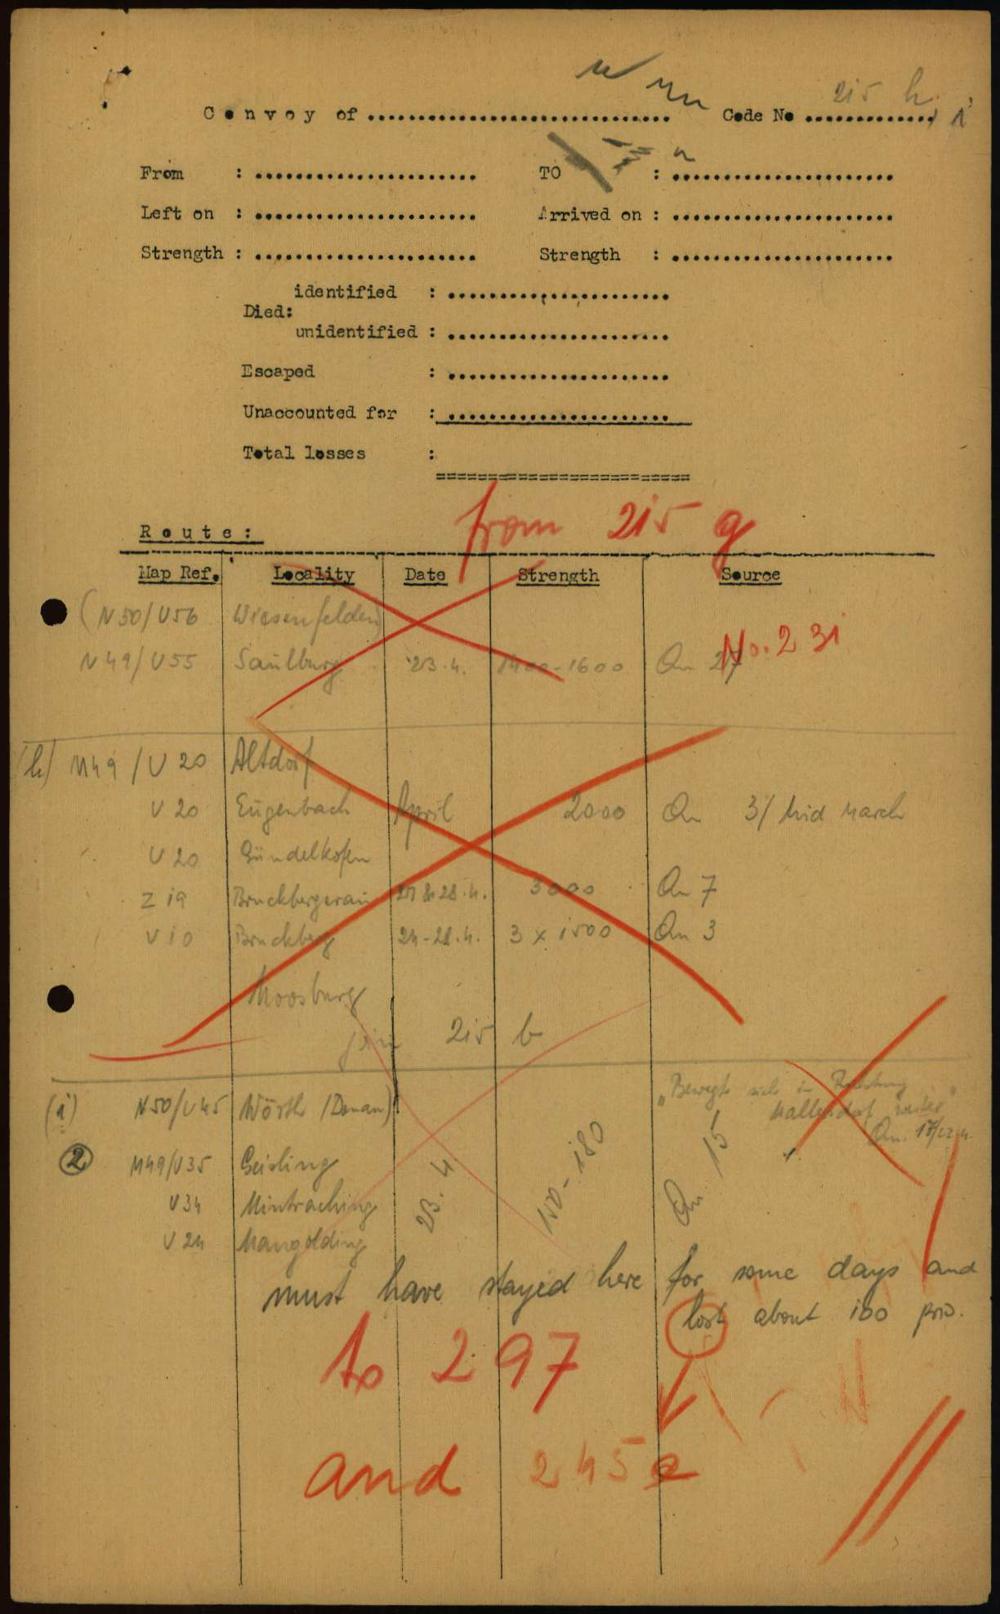 Convoy of .............................. Code No ............. 215 h, i
From : ...................... TO : ......................
Left on : ...................... Arrived on : ......................
Strength : ...................... Strength : ......................
identified : ......................
Died:
unidentified : ......................
Escaped : ......................
Unaccounted for : ......................
Total losses :
=========================
from 215 g
Route:
Map Ref. Locality Date Strength Source
(N50/U56 Wiesenfelden
N49/U55 Saulburg 23.4. 1400-1600 Qn 27 No. 231
(h) M49/U20 Altdorf
U20 Eugenbach April 2000 Qn 3/ Mid March
U20 Gündelkofen
Z19 Bruckbergerau 27 & 28.4. 3000 Qn 7
V10 Bruckberg 24-28.4. 3 x 1500 Qn 3
Moosburg
join 215 b
"Bewegt sich in Richtung
(i) N50/U45 Wörth (Donau)
weiter"
Qn.
(2) M49/U35 Geisling 23.4 150-180 Qn 15
U34 Mintraching
U24 Mangolding
must have stayed here for some days and
lost about 100 pris.
to 297
and 245